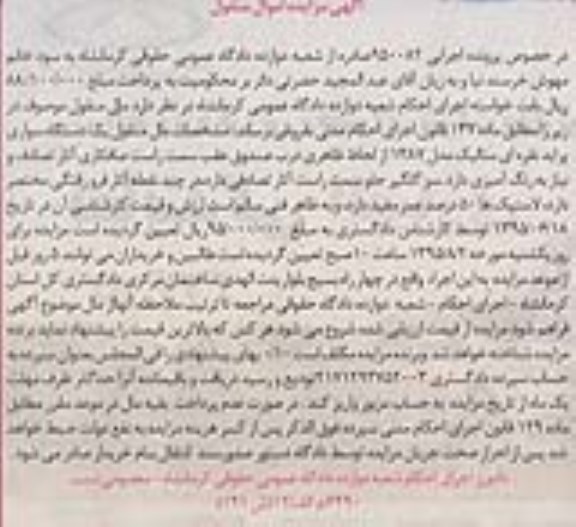 آگهی مزایده اموال منقول
در خصوص پرونده اجرایی ۹۵۰۰۸۲ صادره از شعبه دوازده دادگاه عمومی حقوقی کرمانشاه به سود خانم
مهوش خرسند نیا و به زیان آقای عبدالمجید حضرتی دائر بر محکومیت به پرداخت مبلغ
ریال بابت خواسته اجرای احکام شعبه دوازده دادگاه عمومی کرمانشاه در نظر دارد مال منقول موصوف در
زیر را مطابق ماده ۱۳۷ قانون اجرای احکام مدنی بفروش برساند. مشخصات مال منقول یک دستگاه سواری
پراید نقره ای متالیک مدل ۱۳۸۷ از لحاظ ظاهری درب صندوق عقب سمت راست صافکاری آثار تصادف و
نیاز به رنگ آمیزی دارد سپر گلگیر جلو سمت راست آثار تصادفی دارد در چند نقطه آثار فرورفتگی مختصر
دارد، لاستیک ها ۵۰ درصد عمر مفید دارد و به ظاهر فنی سالم است ارزش و قیمت کارشناسی آن در تاریخ
۱۳۹۵/۰۶/۱۸ توسط کارشناس دادگستری به مبلغ ریال تعیین گردیده است مزایده برای
روز یکشنبه مورخه ساعت ۱۰ صبح تعیین گردیده است طالبین و خریداران می توانند ۵ روز قبل
از موعد مزایده به این اجراء واقع در چهارراه بسیج بلوار بنت الهدی ساختمان مرکزی دادگستری کل استان
کرمانشاه - اجرای احکام - شعبه دوازده دادگاه حقوقی مراجعه تا ترتیب ملاحظه آنها از مال موضوع آگهی
فراهم شود مزایده از قیمت ارزیابی شده شروع می شود هر کس که بالاترین قیمت را پیشنهاد نماید برنده
مزایده شناخته خواهد شد و برنده مزایده مکلف است ۱۰٪ بهای پیشنهادی را فی المجلس بعنوان سپرده به
حساب سپرده دادگستری تودیع و رسید دریافت و باقیمانده آنرا حداکثر ظرف مهلت
یک ماه از تاریخ مزایده به حساب مزبور واریز کند. در صورت عدم پرداخت بقیه مال در موعد مقرر مطابق
ماده ۱۲۹ قانون اجرای احکام مدنی سپرده فوق الذکر پس از کسر هزینه مزایده به نفع دولت ضبط خواهد
شد پس از احراز صحت جریان مزایده توسط دادگاه دستور صدور سند انتقال بنام خریدار صادر می شود.
دادورز اجرای احکام شعبه دوازده دادگاه عمومی حقوقی کرمانشاه - معصومی نسب